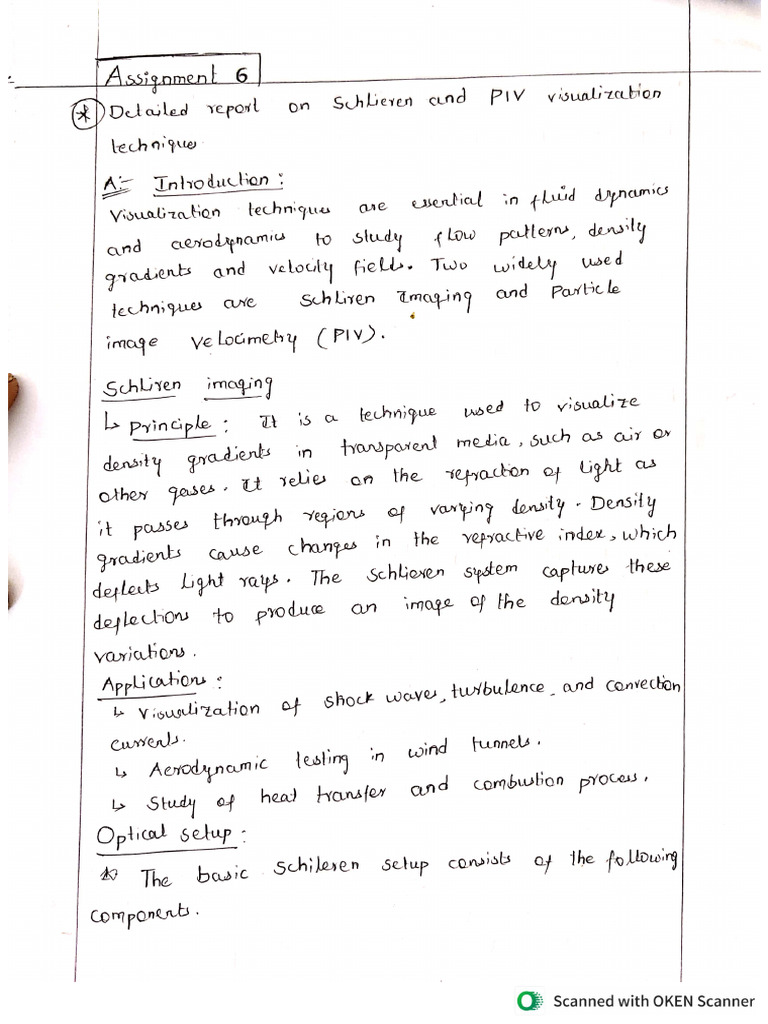 Assignment 6
* Detailed report on Schlieren and PIV visualization
technique
A:- Introduction:
Visualization techniques are essential in fluid dynamics
and aerodynamics to study flow patterns, density
gradients and velocity fields. Two widely used
techniques are Schliren Imaging and Particle
image Velocimetry (PIV).
Schliren imaging
↳ Principle: It is a technique used to visualize
density gradients in transparent media, such as air or
other gases. It relies on the refraction of light as
it passes through regions of varying density. Density
gradients cause changes in the refractive index, which
deflects light rays. The Schlieren system captures these
deflections to produce an image of the density
variations.
Applications:
↳ Visualization of shock waves, turbulence, and convection
currents.
↳ Aerodynamic testing in wind tunnels.
↳ Study of heat transfer and combustion process.
Optical setup:
☆ The basic Schileren setup consists of the following
components.
Scanned with OKEN Scanner